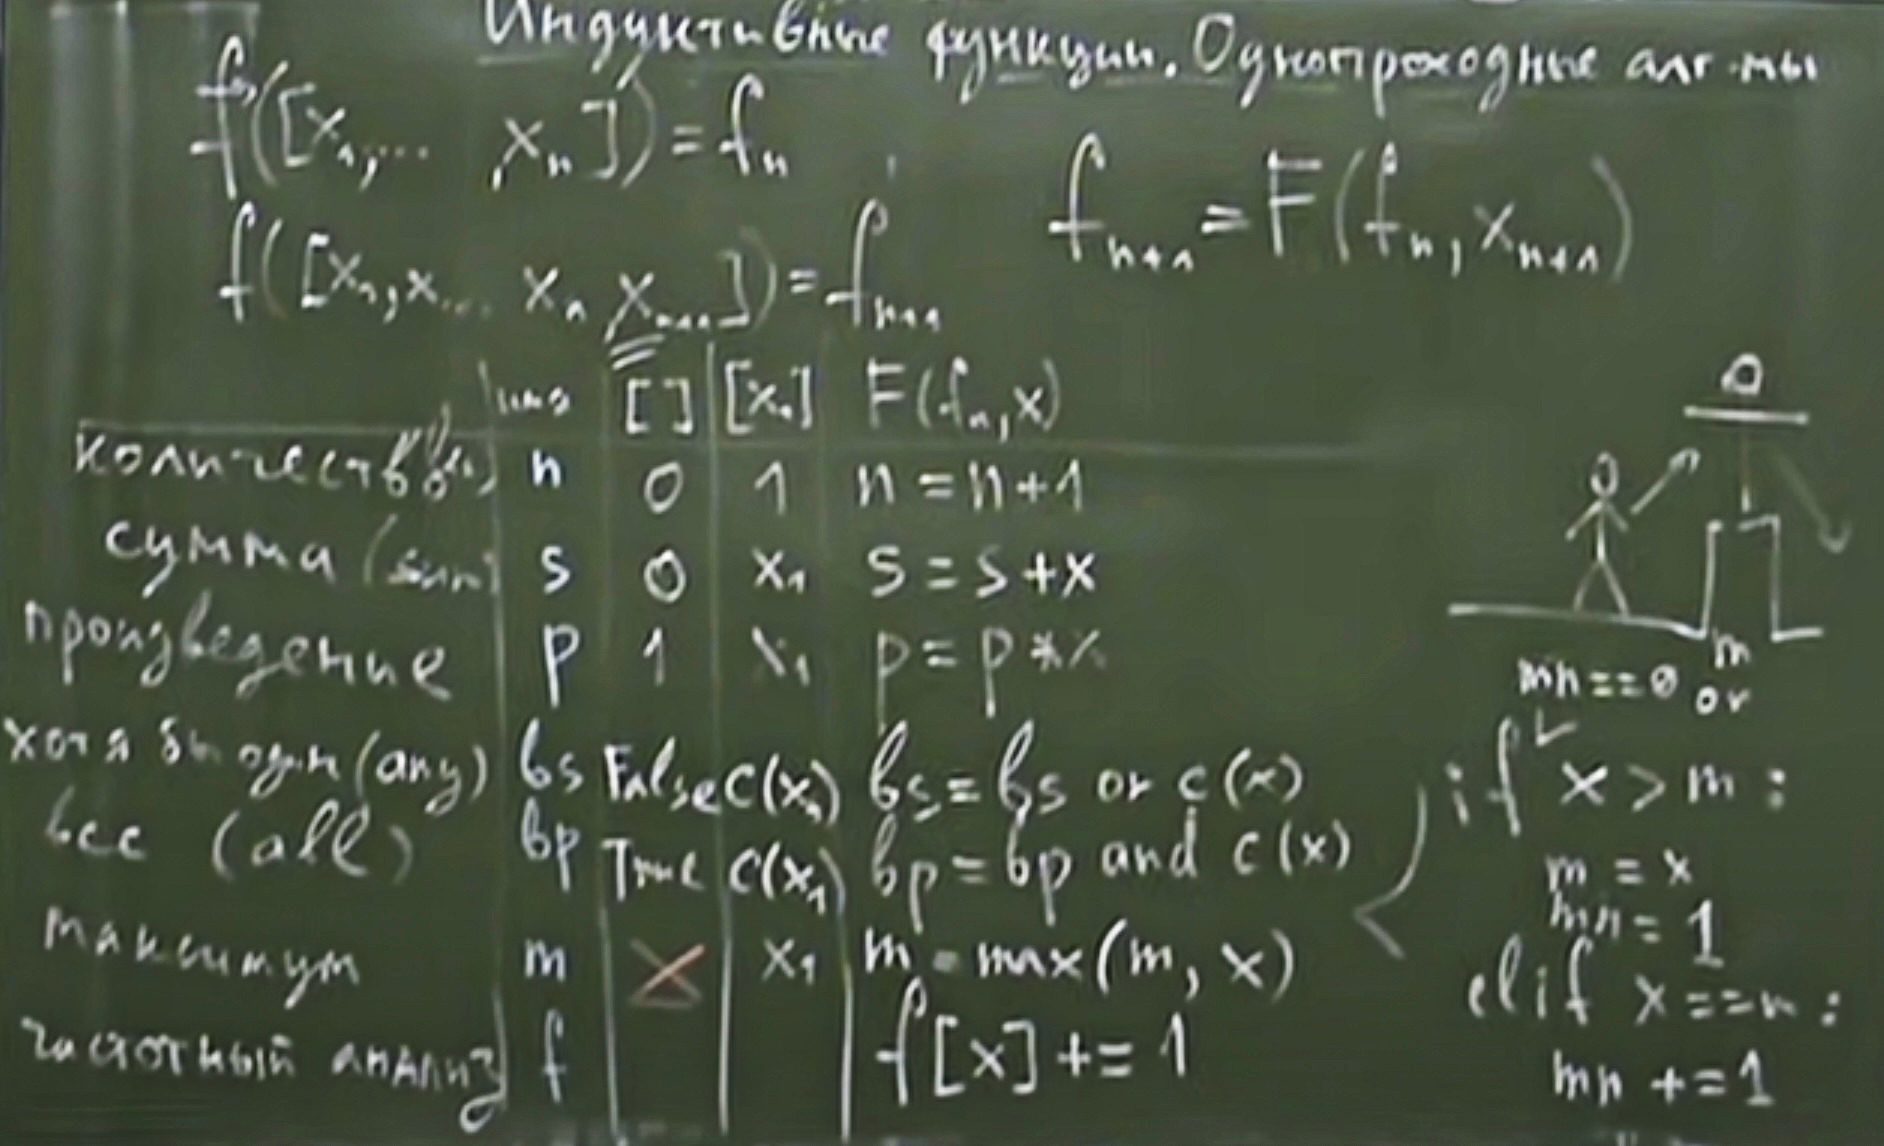 Индуктивные функции. Однопроходные алг-мы
f([x₁,... ,xₙ]) = fₙ
fₙ₊₁ = F(fₙ, xₙ₊₁)
f([x₁,x... xₙ xₙ₊₁]) = fₙ₊₁
[] [x₁] F(fₙ,x)
количество n 0 1 n = n+1
сумма (sum) s 0 x₁ s = s+x
произведение p 1 x₁ p = p*x
хотя бы один (any) bs False c(x₁) bs = bs or c(x)
все (all) bp True c(x₁) bp = bp and c(x)
максимум m x₁ m = max(m, x)
частотный анализ f f[x] += 1
mn==0 or
if x > m :
m = x
mn = 1
elif x == m :
mn += 1